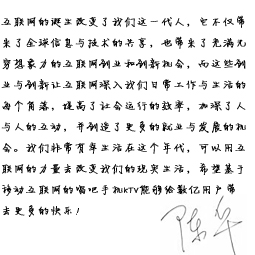 互联网的诞生改变了我们这一代人，它不仅带
来了全球信息与技术的共享，也带来了充满无
穷想象力的互联网创业和创新机会，而这些创
业与创新让互联网深入我们日常工作与生活的
每个角落，提高了社会运行的效率，加深了人
与人的互动，并创造了更多的就业与发展的机
会。我们非常有幸生活在这个年代，可以用互
联网的力量去改变我们的现实生活，希望基于
移动互联网的唱吧手机KTV能够给数亿用户带
去更多的快乐！
陈华